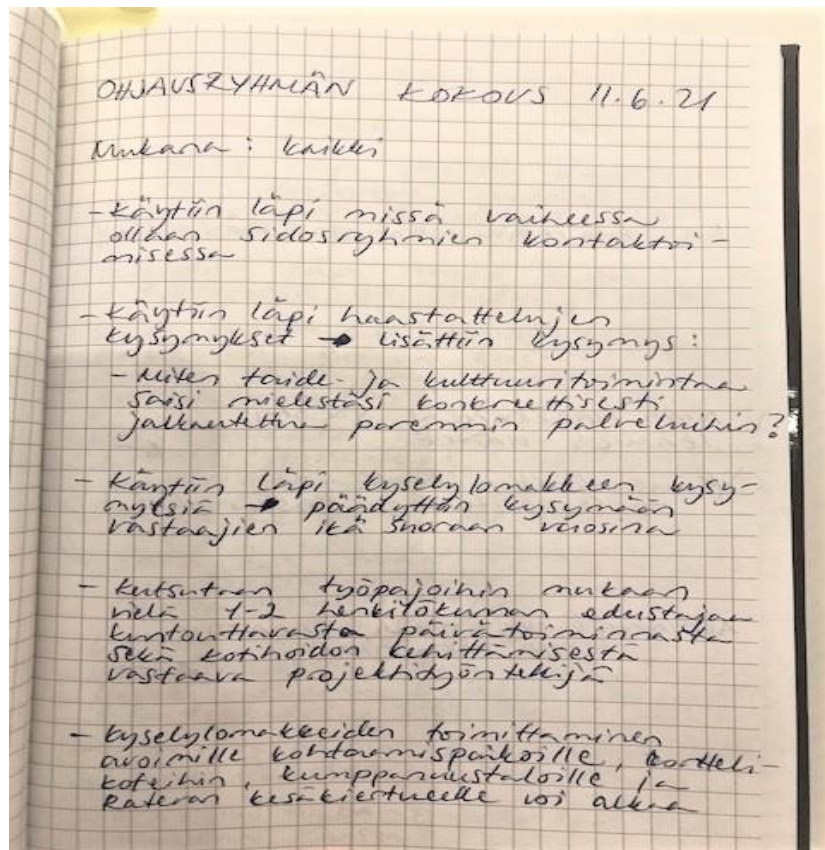 OHJAUSRYHMÄN KOKOUS 11.6.21
Mukana : kaikki
- Käytiin läpi missä vaiheessa
ollaan sidosryhmien kontaktoi-
misessa
- Käytiin läpi haastattelujen
kysymykset → lisättiin kysymys :
- Miten taide- ja kulttuuritoimintaa
saisi mielestäsi konkreettisesti
jalkautettua paremmin palveluihin?
- Käytiin läpi kyselylomakkeen kysy-
myksiä → päädyttiin kysymään
vastaajien ikä suoraan vuosina
- Kutsutaan työpajoihin mukaan
vielä 1-2 henkilökunnan edustajaa
kuntouttavasta päivätoiminnasta
sekä kotihoidon kehittämisestä
vastaava projektityöntekijä
- Kyselylomakkeiden toimittaminen
avoimille kohtaamispaikoille, kortteli-
koteihin, kumppanuustaloille ja
kesäkiertueelle voi alkaa